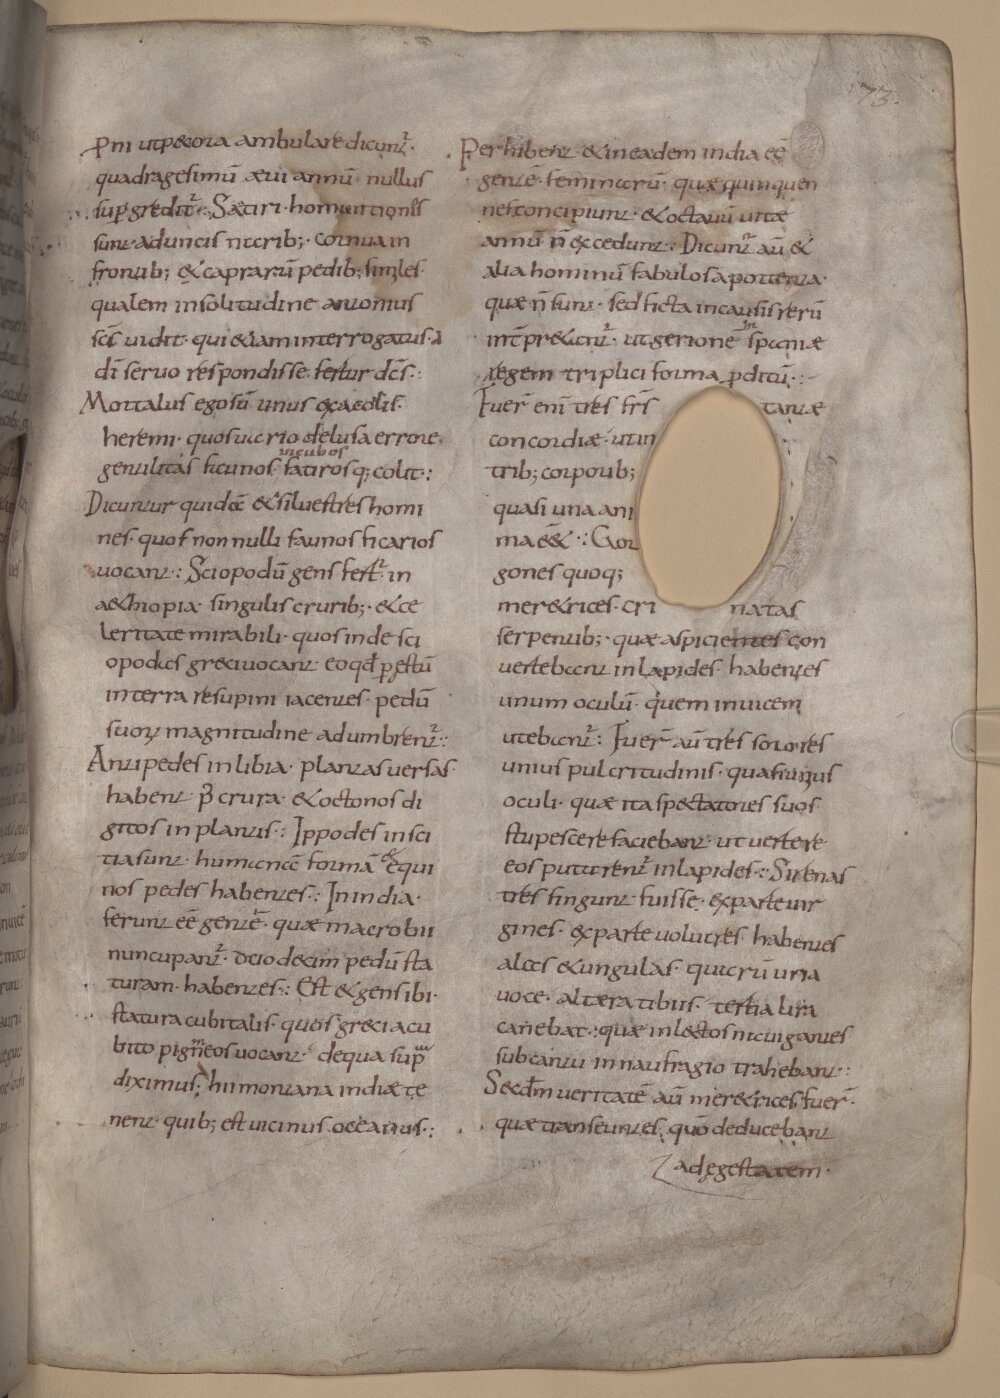 73.
p̱ni ut pecora ambulare dicunt͛·
quadragesimū aeui annū· nullus
sup̱gredit͛·: Satiri· homuntiones
sunt· aduncis narib;· cornua in
frontib; & caprarū pedib; similes·
qualem insolitudine antonius
sc̄s uidit· qui &iam interrogatus· a
dī seruo respondisse fertur dc̄s·:
Mortalis ego sū unus ex accolis·
heremi· quos uario delusa errore·
incubos
gentilitas ficanos· satirosq; colit·:
Dicuntur quidā & siluestres homi
nes· quos nonnulli faunos ficarios
uocant·: Sciopodū gens fert͛ in
aethiopia· singulis crurib;· & ce
leritate mirabili· quos inde sci
opodas greci uocant eo qđ p̱ estū
in terra resupini iacentes· pedū
suoꝝ magnitudine adumbrent͛·:
Antipedes in libia· plantas uersas·
habent p̄ crura· & octonos di
gitos in plantis·: Ippodes in sci
tia sunt· humanā formā & equi
nos pedes habentes·: In india·
ferunt eē gentē· quae macrobii
nuncupant͛· duodecim pedū sta
turam· habentes·: Est & gens ibi·
statura cubitalis· quos greci acu
bito pigmeos uocant· de qua sup̱
diximus; hi montana indiae te
nent· quib; est uicinus oceanus·:
Perhibent· & in eadem india eē
gentē· feminarū· quae quinquen
nes concipiunt· & octauū uitae
annū n̄ excedunt·: Dicunt͛ aū &
alia hominū fabulosa portenta·
quae n̄ sunt· sed ficta in causis rerū
int̄pr&ant͛· ut gerionē hispaniae
regem triplici forma p̱ditū·:
Fuer̄ enī tres frs̄ tantae
concordiae· ut in
trib; corporib;
quasi una ani
ma ēē&·: Gor
gones quoq;
mer&rices· cri natas
serpentib;· quae aspicientes con
uertebant in lapides· habentes
unum oculū· quem inuicem
utebant͛·: Fuer̄ aū tres sorores
unius pulcritudinis· quasi unius
oculi· quae ita spectatores suos
stupescere faciebant· ut uertere
eos putarent͛ in lapides·: Sirenas
tres fingunt fuisse· ex parte uir
gines· ex parte uolucres· habentes
alas & ungulas· quarū una
uoce· altera tibiis· tertia lira
canebat·: quae inlectos nauigantes
sub cantu in naufragio trahebant·:
Secđm ueritatē aū mer&rices fuer̄·
quae transeuntes· quō deducebant
ad egestatem·